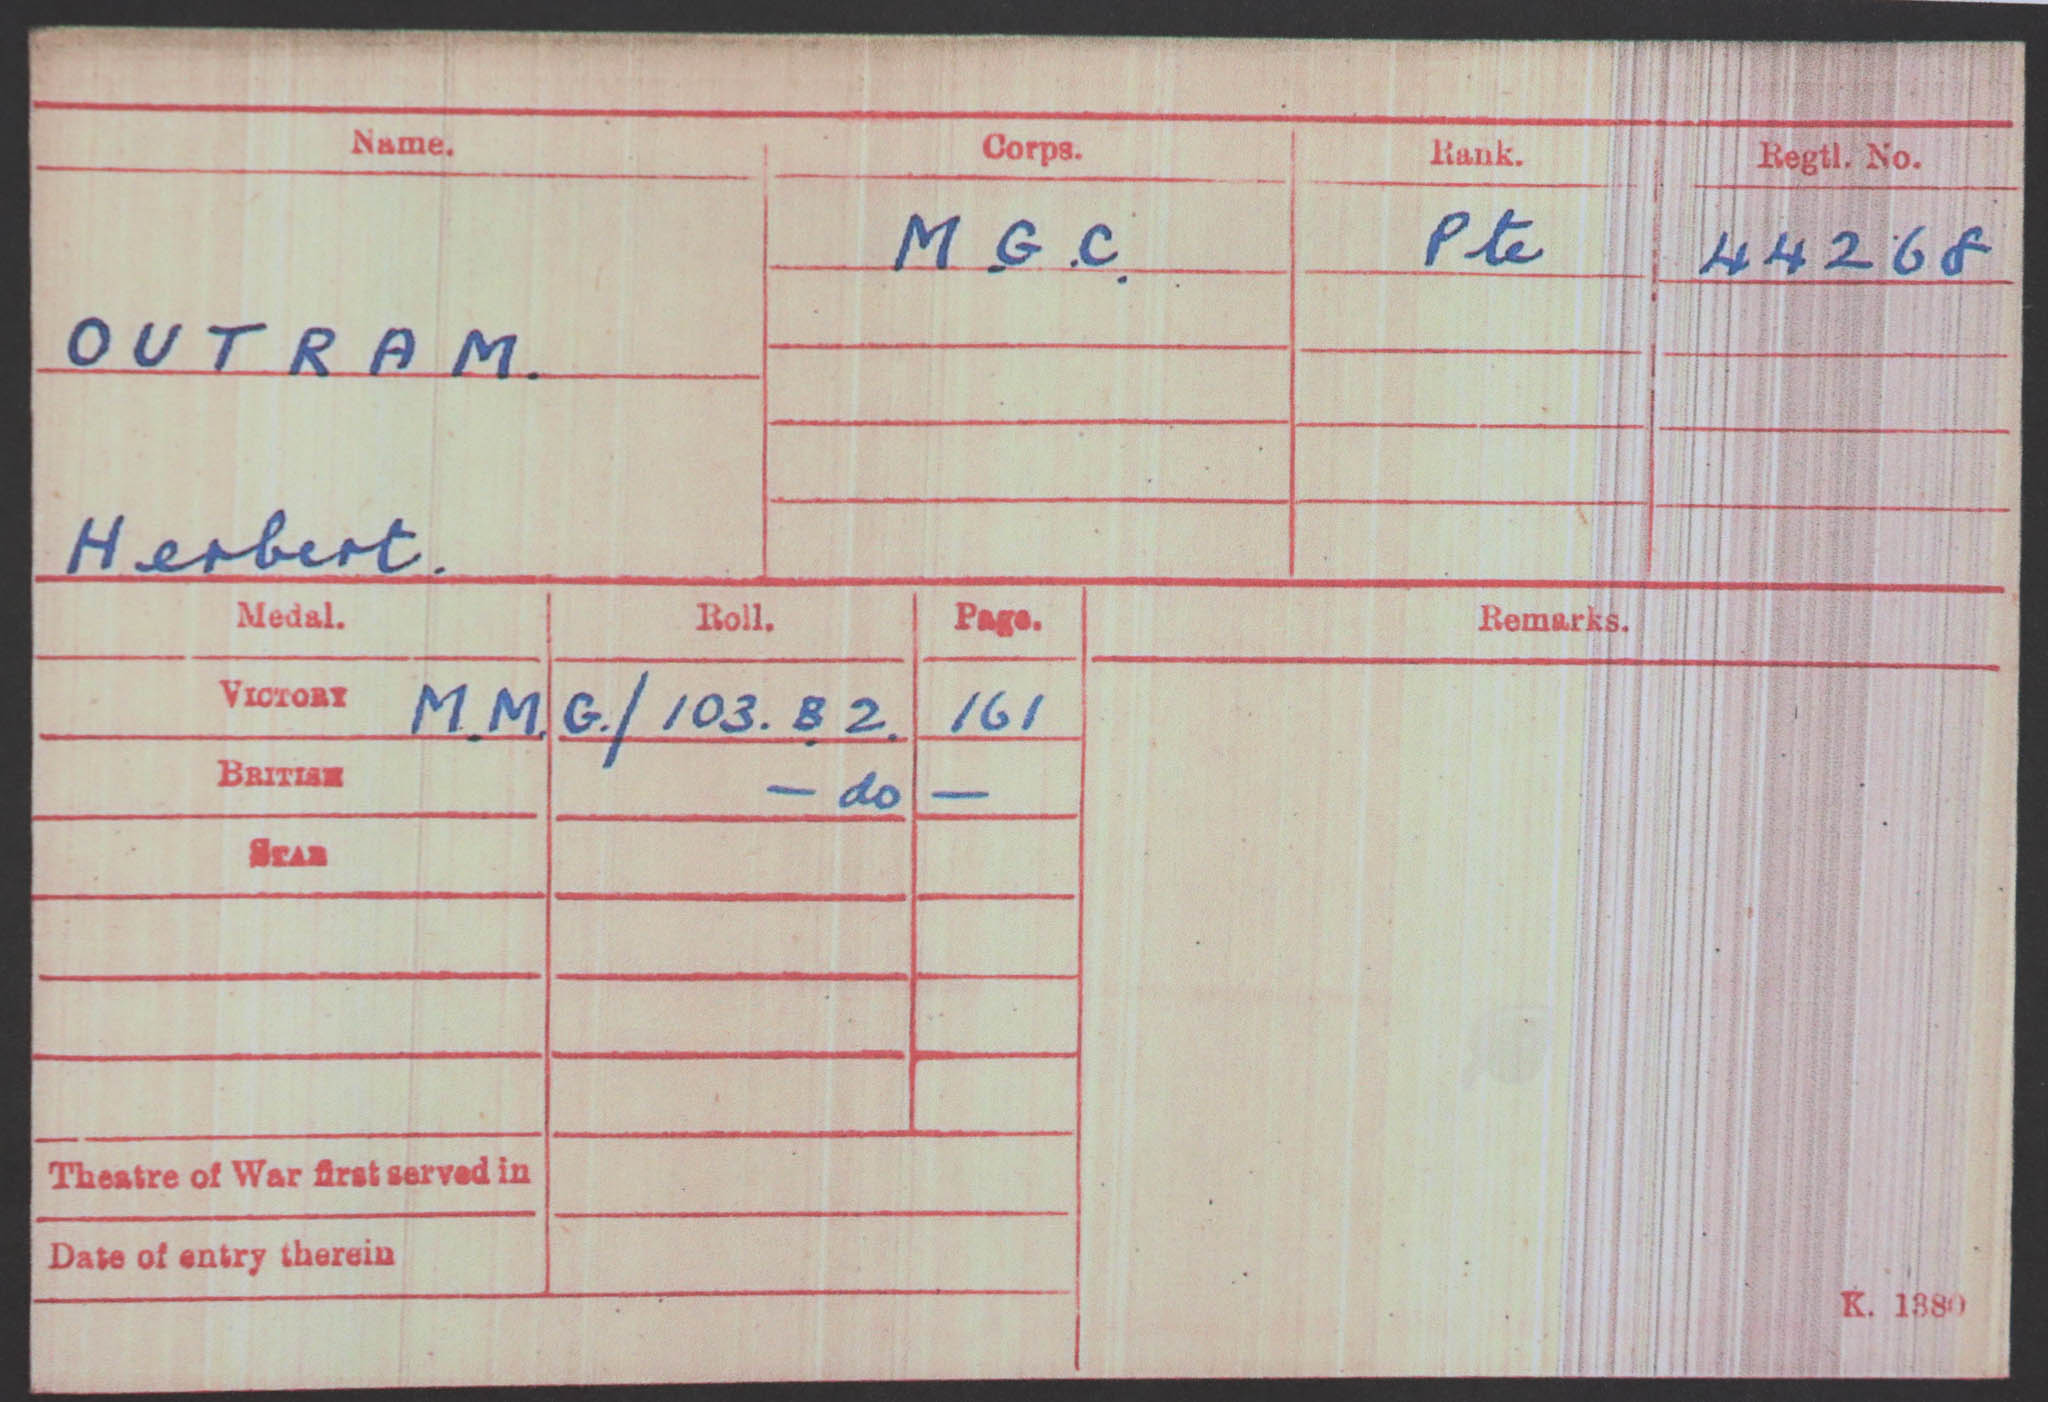 Name. Corps. Rank. Regtl. No.
M.G.C. Pte 44268
OUTRAM.
Herbert.
Medal. Roll. Page. Remarks.
VICTORY M.M.G./103.B2. 161
BRITISH — do —
STAR
Theatre of War first served in
Date of entry therein
K. 1380